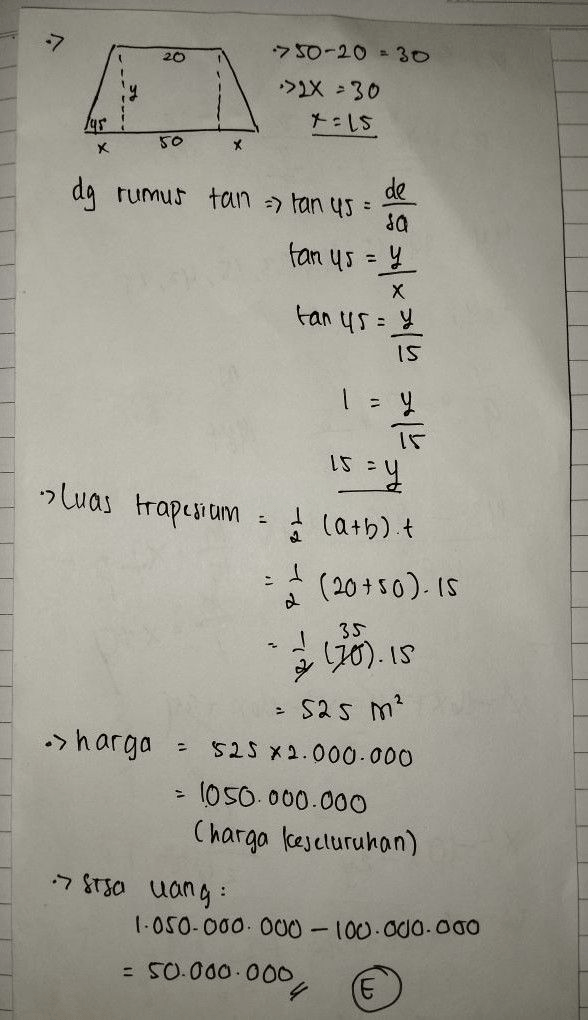 20
y
45
x 50 x
·> 50-20 = 30
·> 2x = 30
x = 15
dg rumus tan => tan 45 = de/sa
tan 45 = y/x
tan 45 = y/15
1 = y/15
15 = y
·> Luas trapesium = 1/2 (a+b).t
= 1/2 (20+50).15
= 1/2 (70).15
35
= 525 m²
·> harga = 525 x 2.000.000
= 1050.000.000
(harga keseluruhan)
·> sisa uang :
1.050.000.000 - 100.000.000
= 50.000.000 E